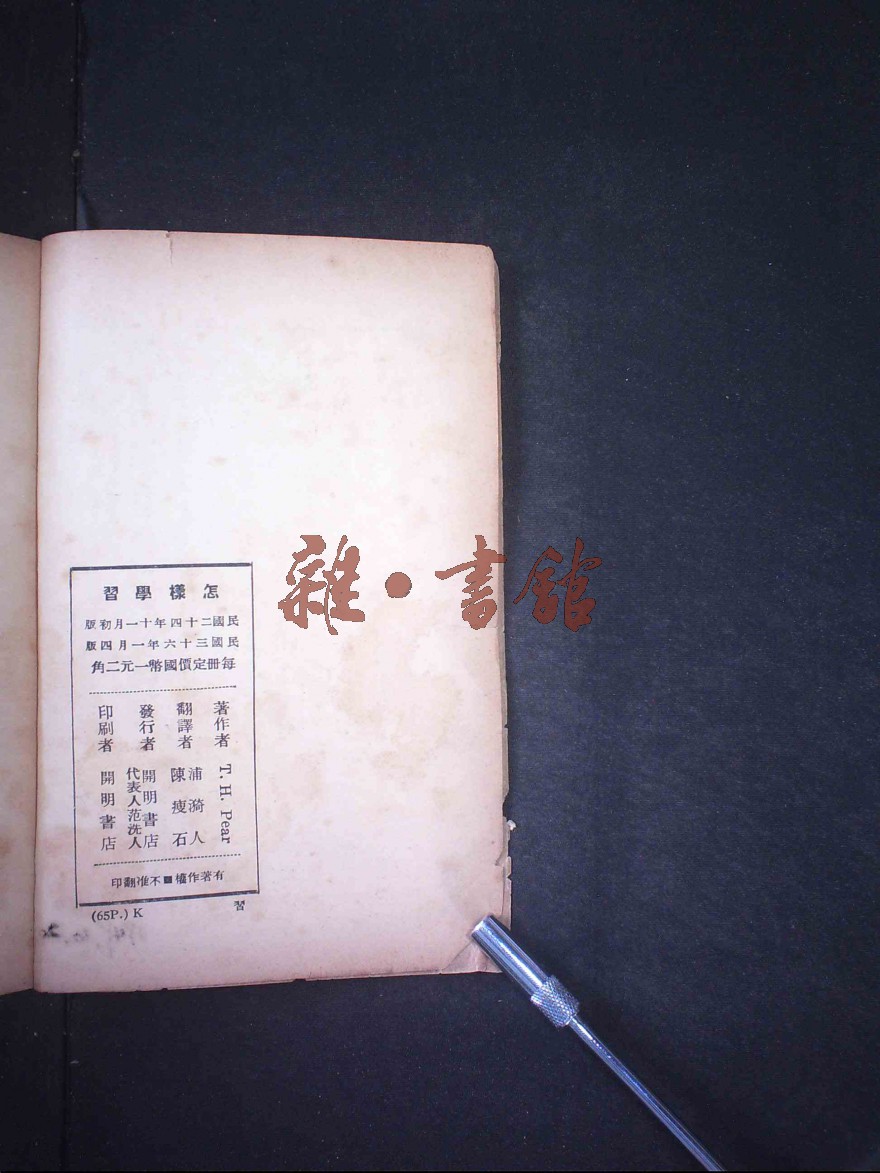 怎樣學習
民國二十四年十一月初版
民國三十六年一月四版
每冊定價國幣一元二角
著作者 T. H. Pear
翻譯者 浦漪人
陳瘦石
發行者 開明書店
代表人范洗人
印刷者 開明書店
有著作權■不准翻印
(65P.) K 習
雜·書館